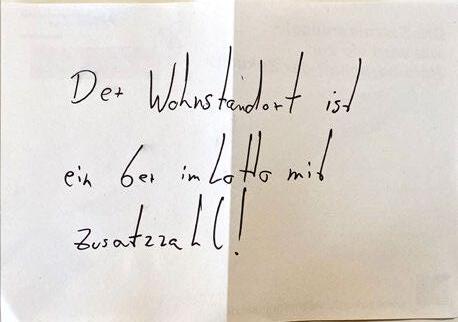 Der Wohnstandort ist
ein 6er im Lotto mit
Zusatzzahl!